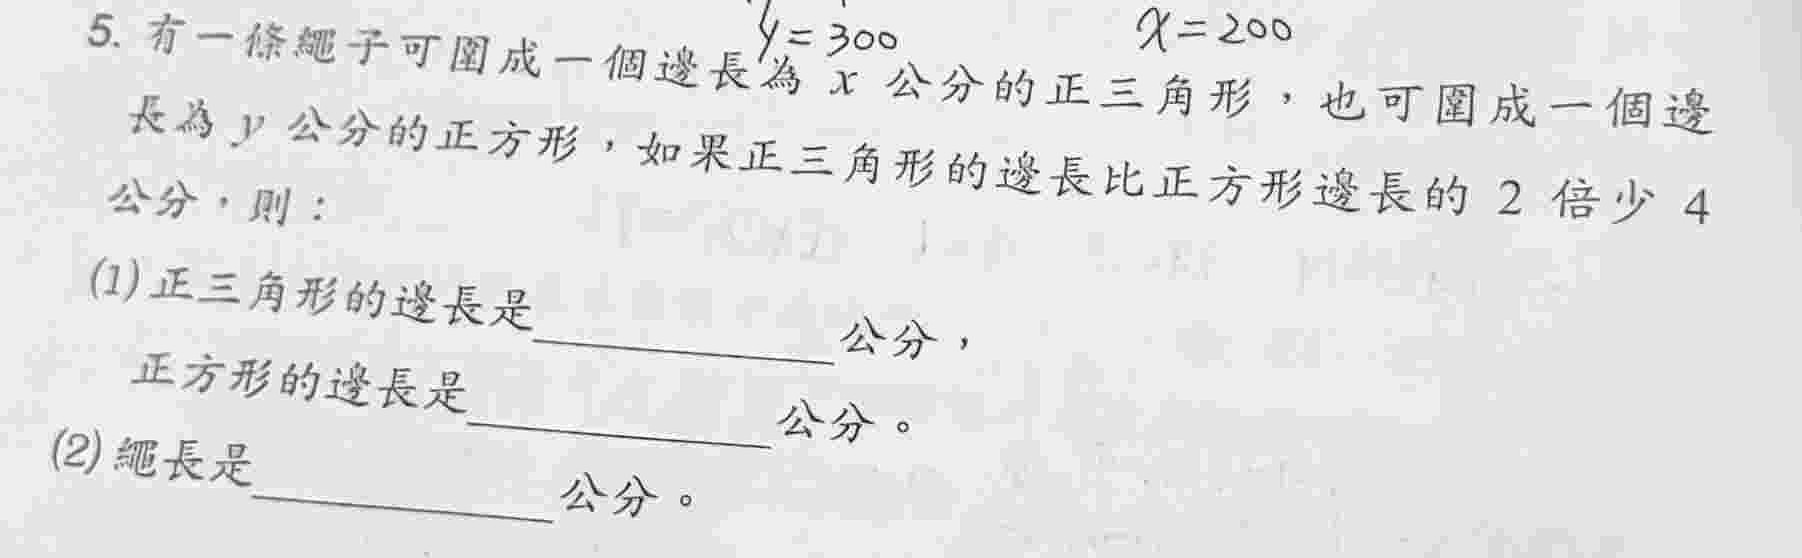 y=300 x=200
5. 有一條繩子可圍成一個邊長為 x 公分的正三角形，也可圍成一個邊
長為 y 公分的正方形，如果正三角形的邊長比正方形邊長的 2 倍少 4
公分，則：
(1) 正三角形的邊長是＿＿＿＿＿＿公分，
正方形的邊長是＿＿＿＿＿＿公分。
(2) 繩長是＿＿＿＿＿＿公分。